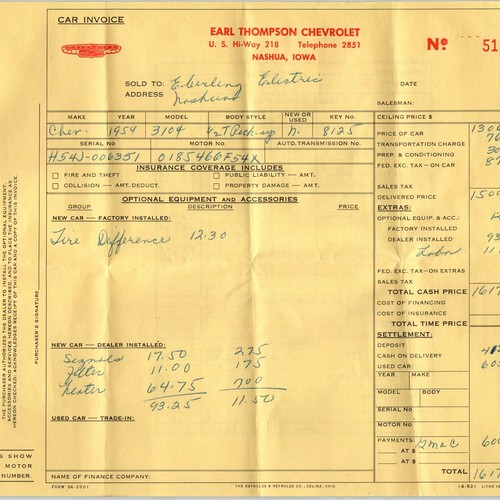 CAR INVOICE
EARL THOMPSON CHEVROLET
U. S. Hi-Way 218 Telephone 2851
NASHUA, IOWA
No. 51
SOLD TO: Eberling Electric
ADDRESS Nashua
DATE
SALESMAN:
MAKE YEAR MODEL BODY STYLE NEW OR USED KEY No. CEILING PRICE $
Chev. 1954 3104 1/2T Pick-up N. 8125 PRICE OF CAR 1300
SERIAL No. MOTOR No. AUTO.TRANSMISSION No. TRANSPORTATION CHARGE 76
H54J-006351 0185466F54X PREP. & CONDITIONING 30
INSURANCE COVERAGE INCLUDES FED. EXC. TAX—ON CAR 87
FIRE AND THEFT PUBLIC LIABILITY — AMT.
COLLISION — AMT. DEDUCT. PROPERTY DAMAGE — AMT. SALES TAX
OPTIONAL EQUIPMENT AND ACCESSORIES DELIVERED PRICE 1500
GROUP DESCRIPTION PRICE EXTRAS:
NEW CAR — FACTORY INSTALLED: OPTIONAL EQUIP. & ACC.:
FACTORY INSTALLED
Tire Difference 12.30 DEALER INSTALLED 93
Labor 11
FED. EXC. TAX—ON EXTRAS
SALES TAX
TOTAL CASH PRICE 1617
COST OF FINANCING
COST OF INSURANCE
TOTAL TIME PRICE
SETTLEMENT:
NEW CAR — DEALER INSTALLED: DEPOSIT
Signals 17.50 275 CASH ON DELIVERY 412
Filter 11.00 175 USED CAR: 605
Heater 64.75 700 YEAR MAKE
93.25 11.50 MODEL BODY
USED CAR — TRADE-IN: SERIAL No.
MOTOR No.
PAYMENTS: GMAC 600
AT $
AT $
NAME OF FINANCE COMPANY: TOTAL 1617
FORM SA-2501 THE REYNOLDS & REYNOLDS CO., CELINA, OHIO (6-52) LITHO IN
PURCHASER'S SIGNATURE
THE PURCHASER AUTHORIZES THE DEALER TO INSTALL THE OPTIONAL EQUIPMENT,
ACCESSORIES AND SERVICES HEREON DESCRIBED, AND TO PLACE THE INSURANCE AS
HEREON CHECKED; ACKNOWLEDGES RECEIPT OF THIS CAR AND A COPY OF THIS INVOICE.
S SHOW
MOTOR
NUMBER.